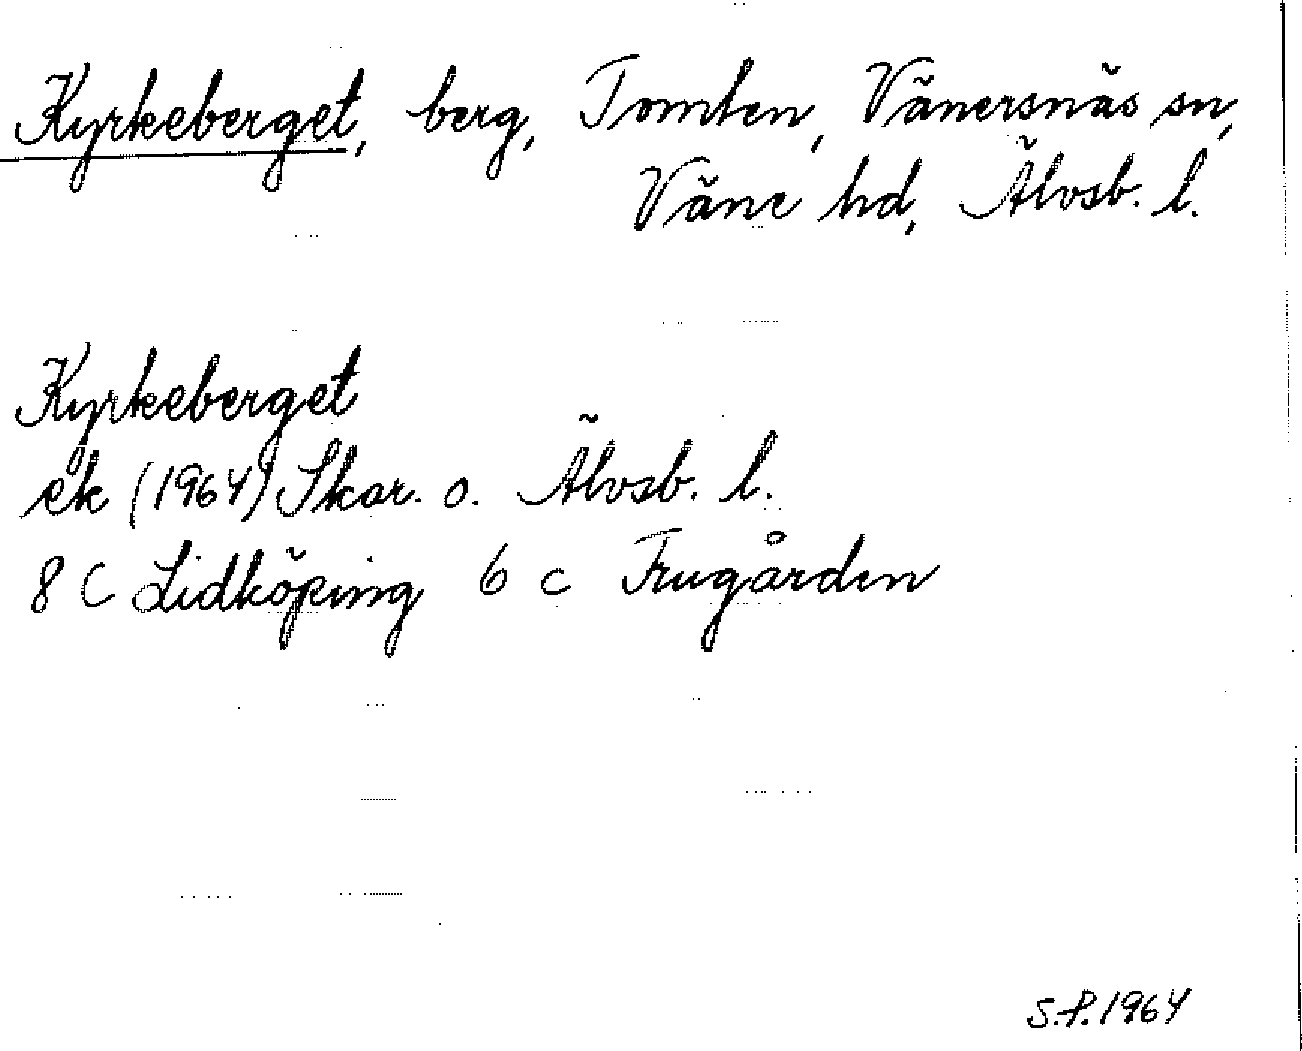 Kyrkeberget, berg, Tomten, Vänersnäs sn,
Väne hd, Älvsb. l.
Kyrkeberget
ek (1964) Skar. o. Älvsb. l.
8 C Lidköping 6 c Frugården
S.P. 1964